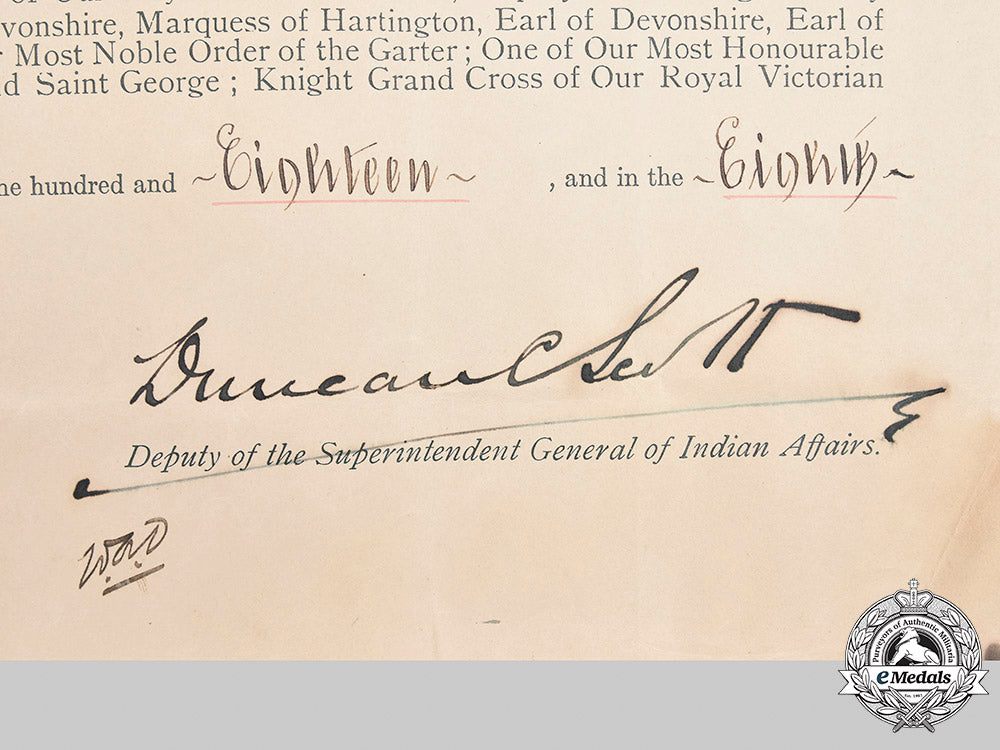 vonshire, Marquess of Hartington, Earl of Devonshire, Earl of
Most Noble Order of the Garter; One of Our Most Honourable
d Saint George; Knight Grand Cross of Our Royal Victorian
ne hundred and ~Eighteen~, and in the ~Eighth~
Duncan C Scott
Deputy of the Superintendent General of Indian Affairs.
Purveyors of Authentic Militaria
eMedals